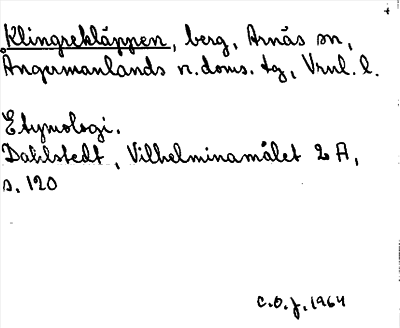 Klingrekläppen, berg, Arnäs sn,
Ångermanlands n. doms. tg, Vrnl. l.
Etymologi.
Dahlstedt, Vilhelminamålet 2 A,
s. 120
C.O.J. 1964